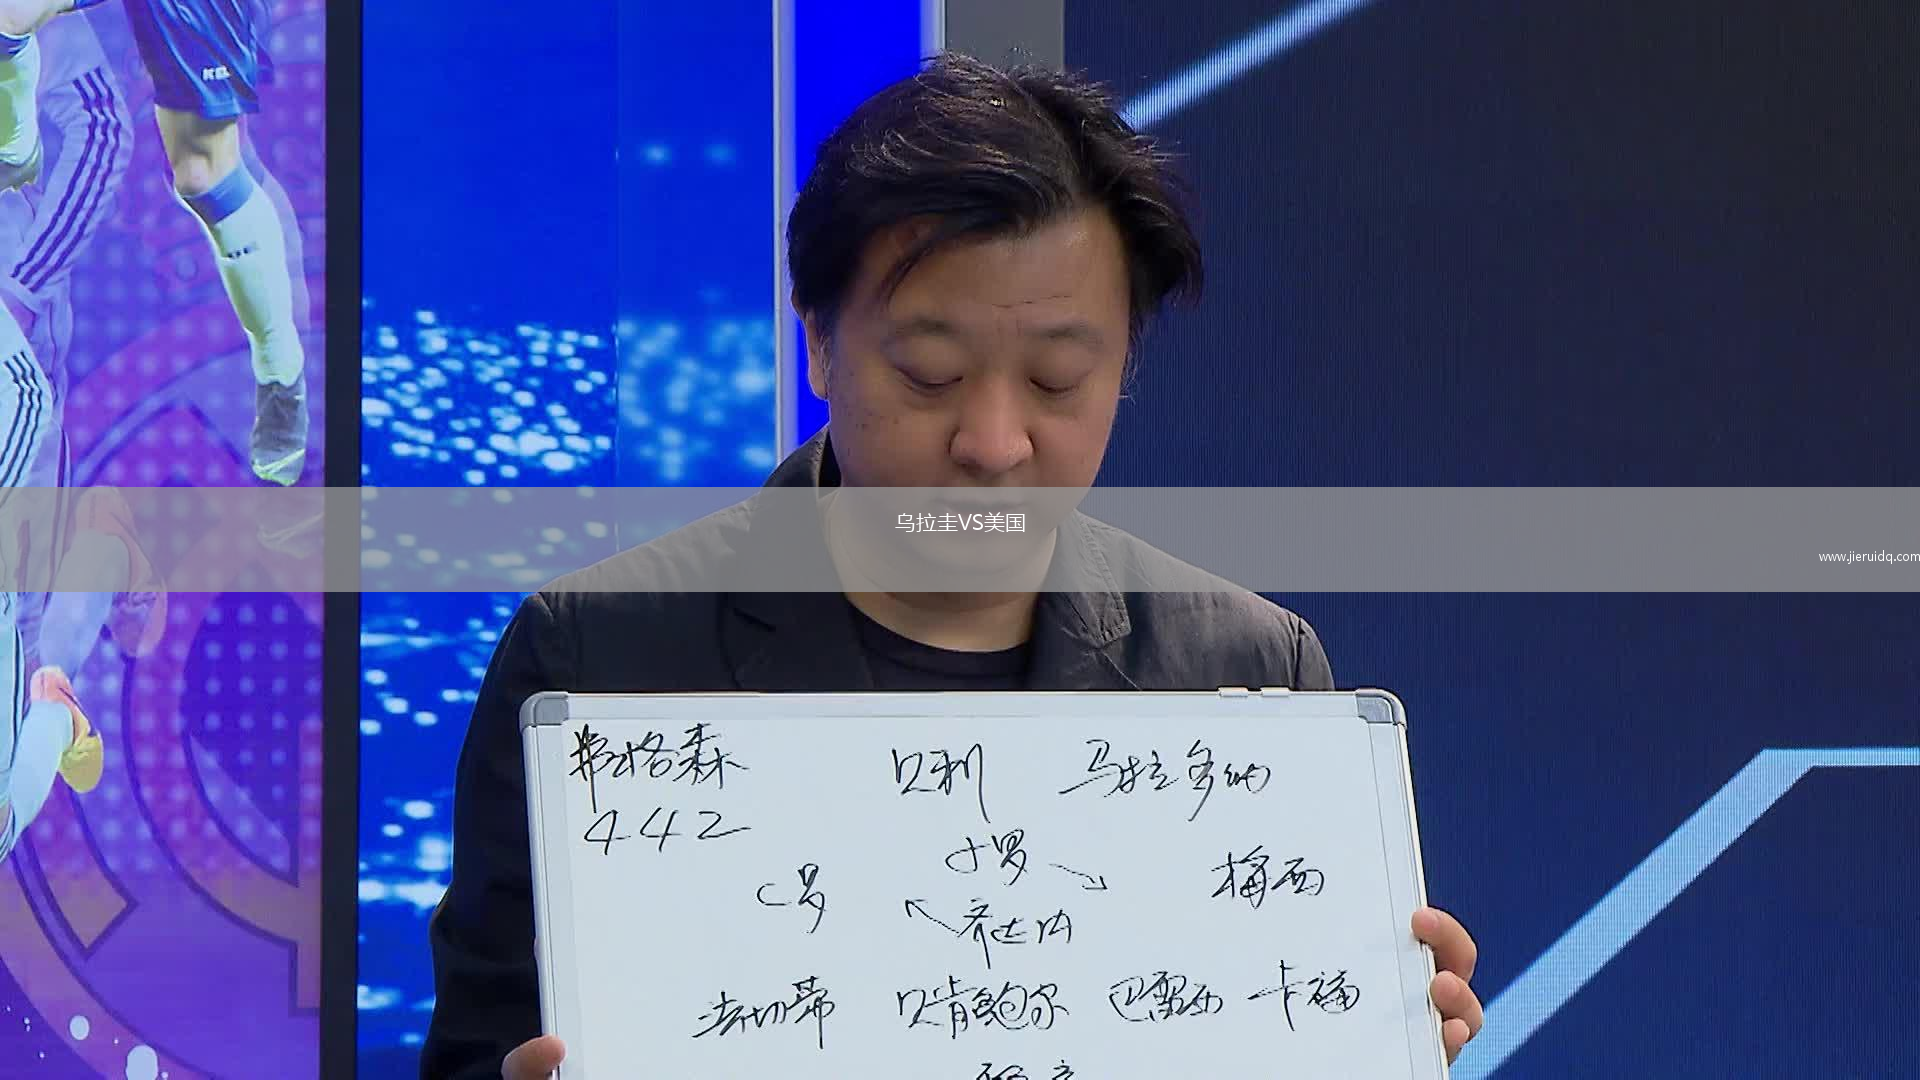 KE
乌拉圭VS美国
www.jieruidq.com
弗格森 贝利 马拉多纳
442
小罗
C罗 梅西
齐达内
法切蒂 贝肯鲍尔 巴雷西 卡福